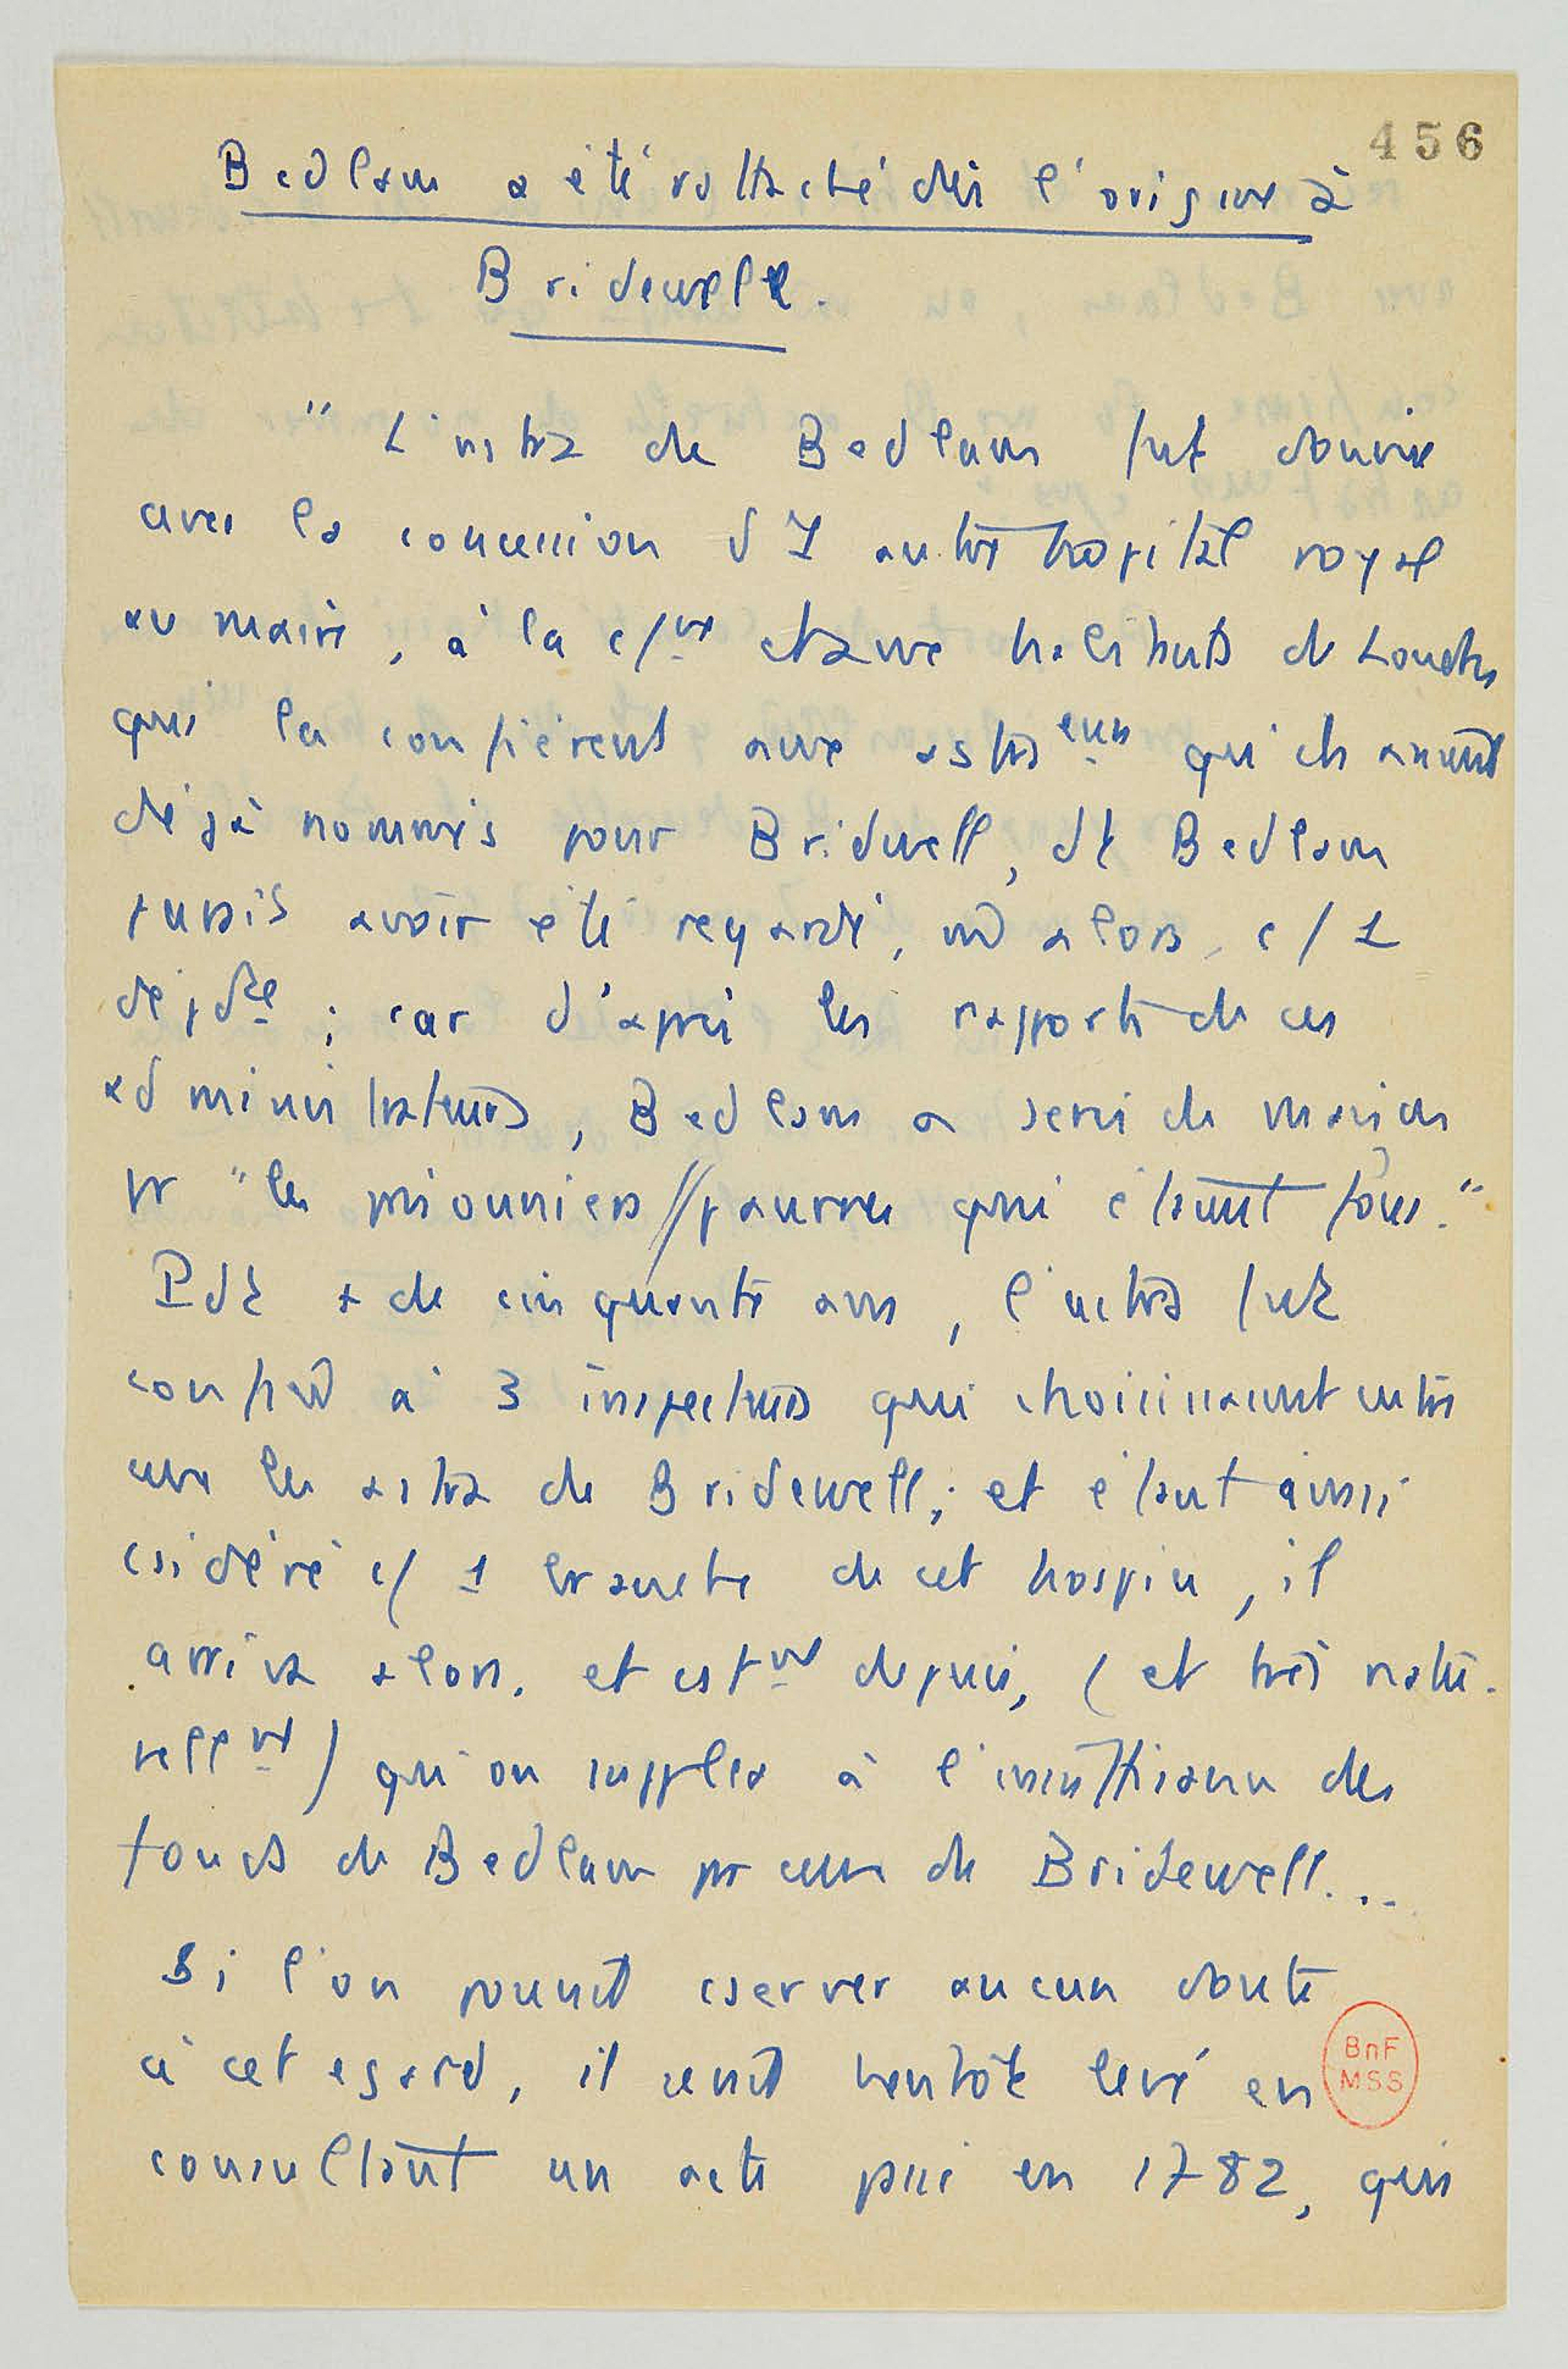 456
Bedlam a été rattaché dès l'origine à
Bridewell.
" L'astra de Bedlam fut donnée
avec la concession d'1 autre hospital royal
au maire, à la c/ne et aux habitants de Londres
qui la confièrent aux astraeurs qu'ils avaient
déjà nommés pour Bridwell, dt Bedlam
paraît avoir été regardé, alors, c/ 1
dépdce ; car d'après les rapports de ces
administrateurs, Bedlam a servi de maison
pr "les prisonniers // pauvres qui étaient fous."
Pdt + de cinquante ans, l'astra fut
confiée à 3 inspecteurs qui choisissaient entre
eux les astra de Bridewell ; et étant ainsi
csidéré c/ 1 branche de cet hospice, il
arriva alors, et est vé depuis, (et très natu-
rellnt) qu'on suppléa à l'insuffisance des
fonds de Bedlam pr ceux de Bridewell...
Si l'on pouvait cserver aucun doute
à cet egard, il serait bientôt levé en
consultant un acte passé en 1782, qui
BnF
MSS